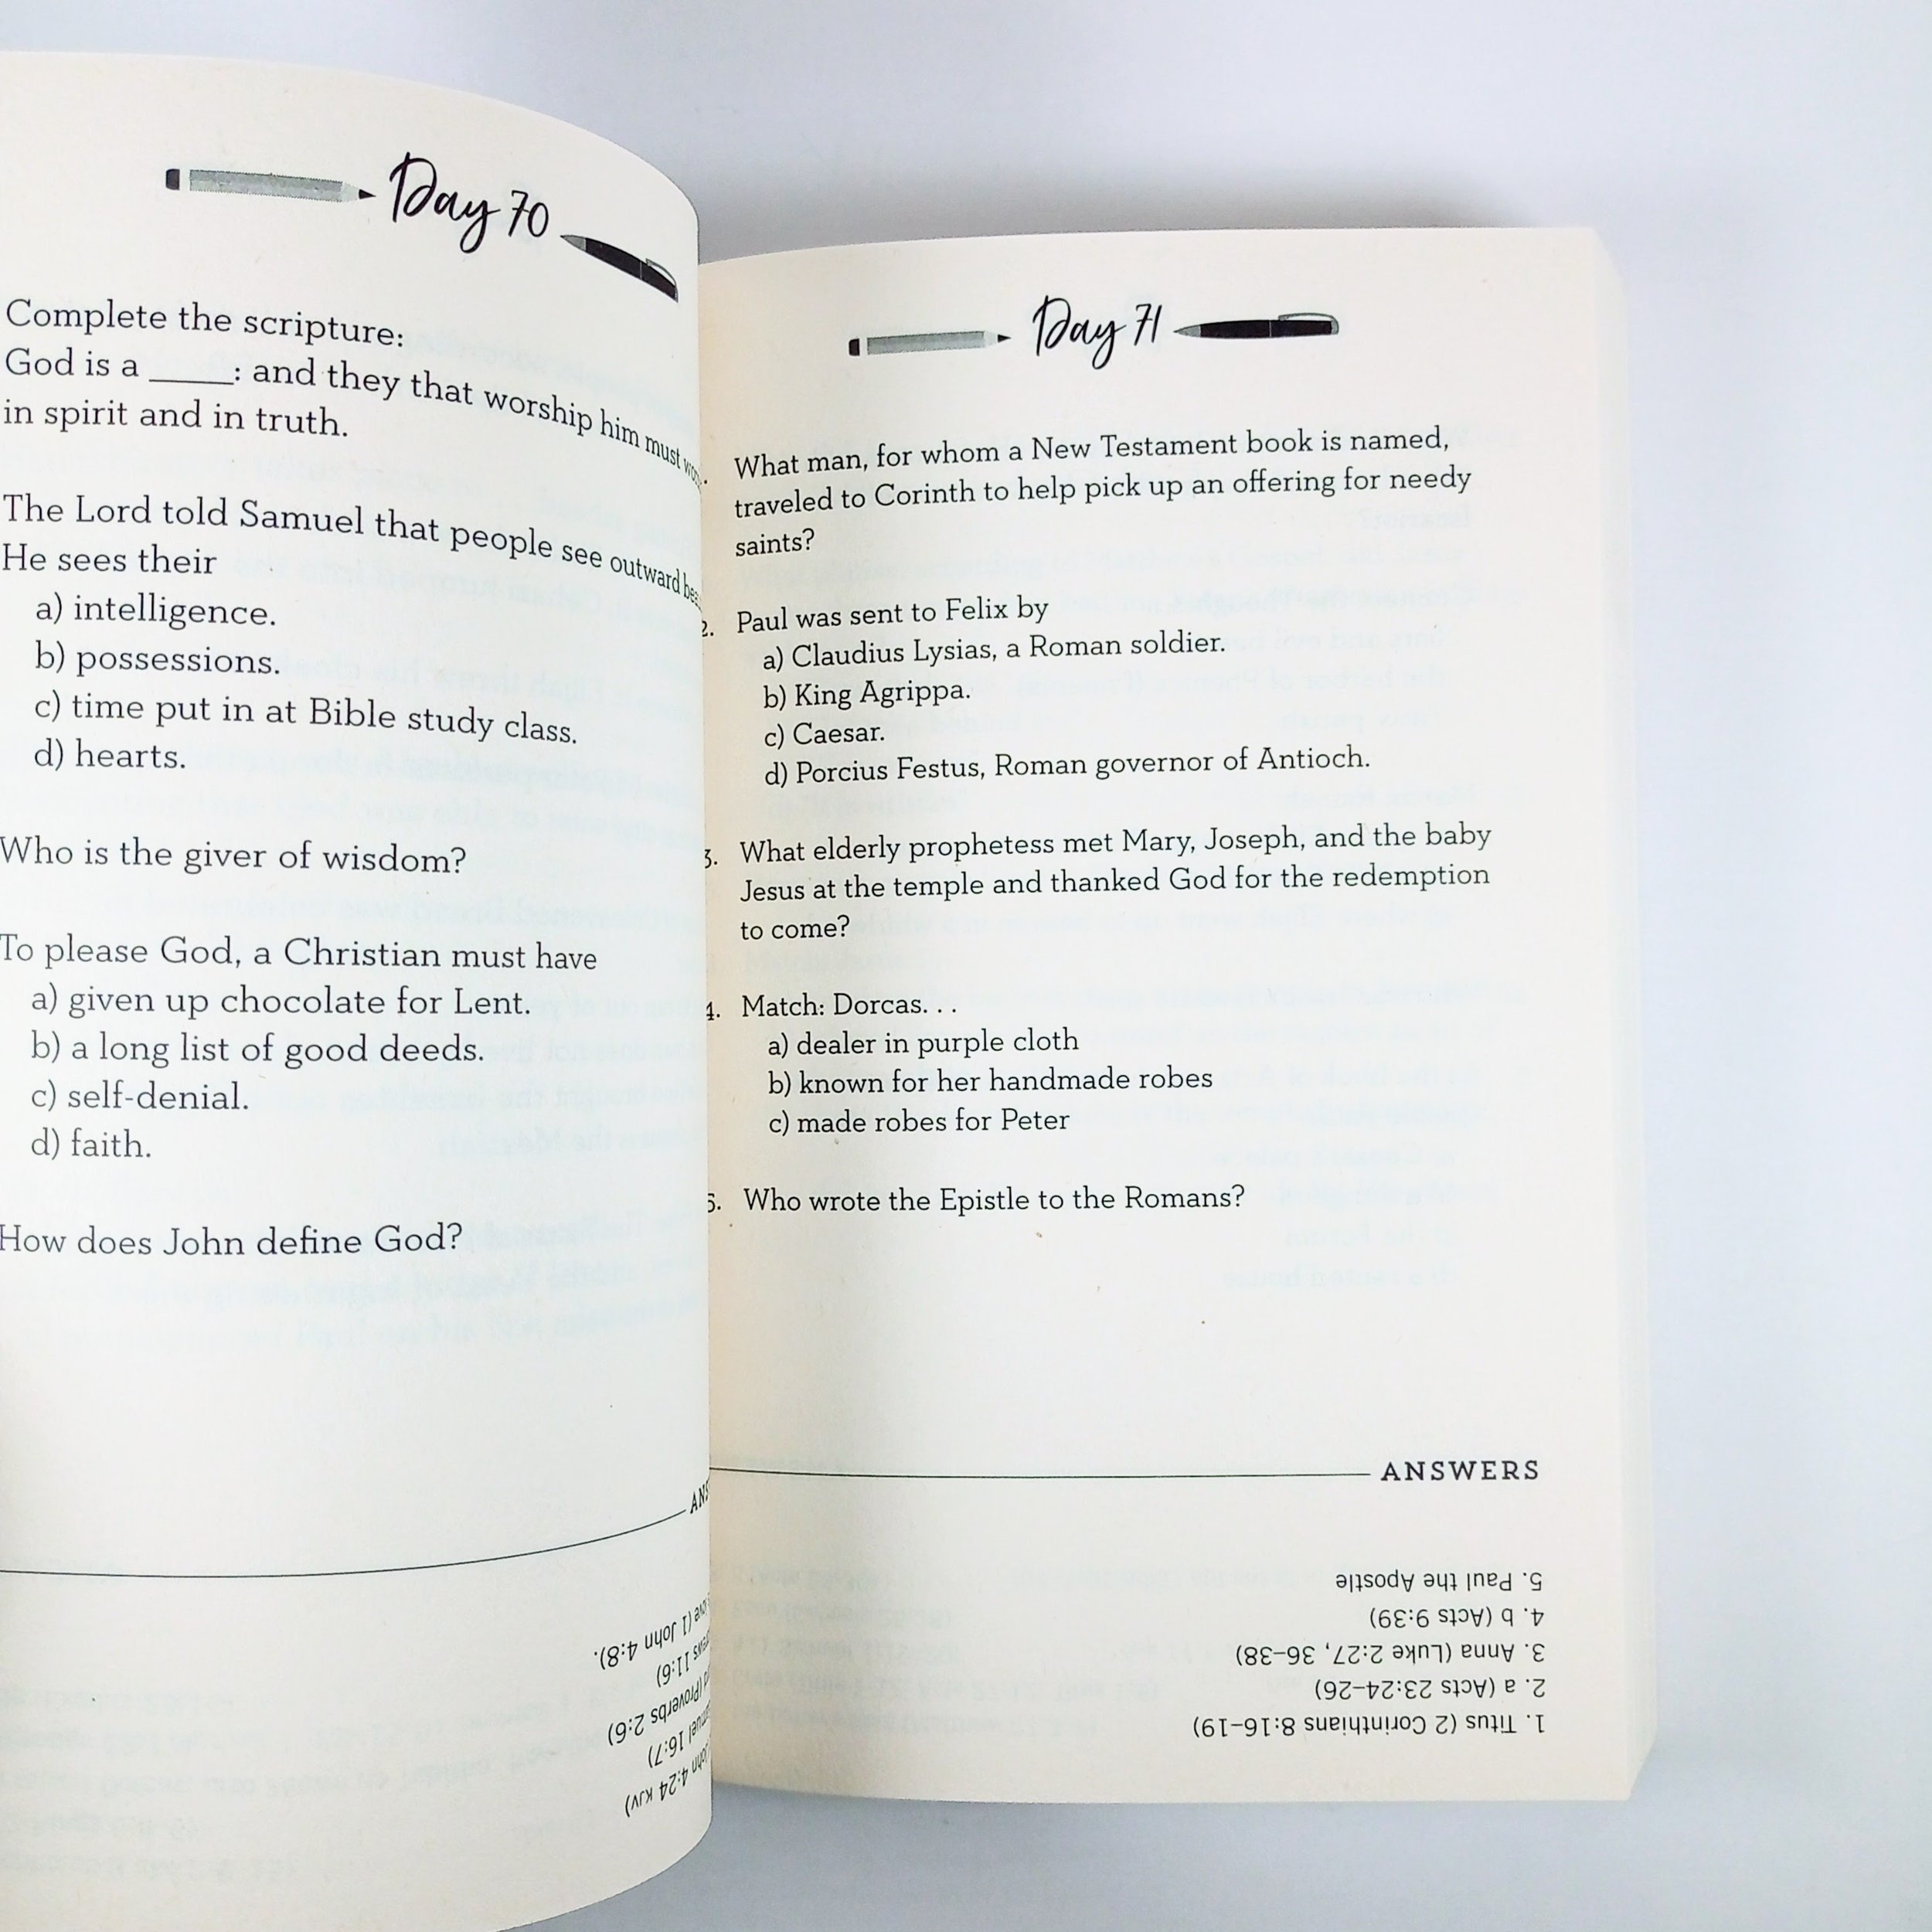 Day 70
Complete the scripture:
God is a _____: and they that worship him must
in spirit and in truth.
The Lord told Samuel that people see outward
He sees their
a) intelligence.
b) possessions.
c) time put in at Bible study class.
d) hearts.
Who is the giver of wisdom?
To please God, a Christian must have
a) given up chocolate for Lent.
b) a long list of good deeds.
c) self-denial.
d) faith.
How does John define God?
(1 John 4:8).
11:6)
(Proverbs 2:6)
16:7)
4:24 KJV)
Day 71
What man, for whom a New Testament book is named,
traveled to Corinth to help pick up an offering for needy
saints?
2. Paul was sent to Felix by
a) Claudius Lysias, a Roman soldier.
b) King Agrippa.
c) Caesar.
d) Porcius Festus, Roman governor of Antioch.
3. What elderly prophetess met Mary, Joseph, and the baby
Jesus at the temple and thanked God for the redemption
to come?
4. Match: Dorcas. . .
a) dealer in purple cloth
b) known for her handmade robes
c) made robes for Peter
5. Who wrote the Epistle to the Romans?
ANSWERS
1. Titus (2 Corinthians 8:16–19)
2. a (Acts 23:24–26)
3. Anna (Luke 2:27, 36–38)
4. b (Acts 9:39)
5. Paul the Apostle